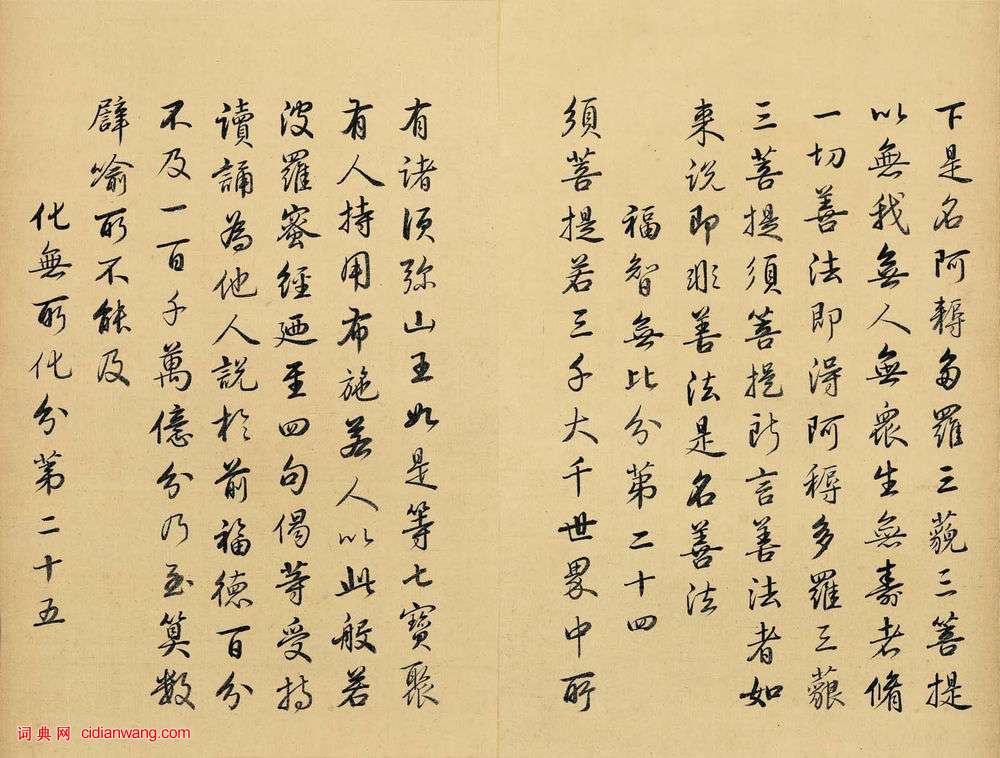 下是名阿耨多羅三藐三菩提
以無我無人無衆生無壽者脩
一切善法即得阿耨多羅三藐
三菩提須菩提所言善法者如
来说即非善法是名善法
福智無比分第二十四
須菩提若三千大千世界中所
有諸須弥山王如是等七寳聚
有人持用布施若人以此般若
波羅蜜經廼至四句偈等受持
讀誦為他人説於前福德百分
不及一百千萬億分乃至算数
譬喻所不能及
化無所化分第二十五
词典网 cidianwang.com